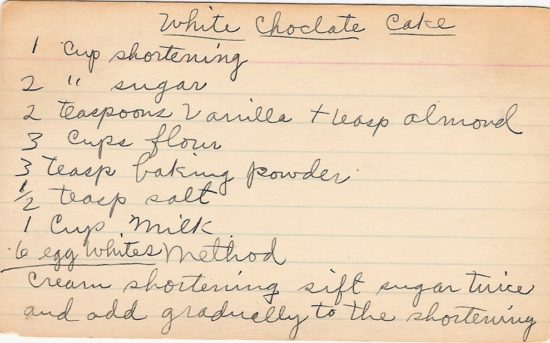 White Choclate Cake
1 Cup shortening
2 " sugar
2 teaspoons Vanilla + teasp almond
3 cups flour
3 teasp baking powder
1/2 teasp salt
1 Cup Milk
6 egg whites Method
Cream shortening sift sugar twice
and add gradually to the shortening